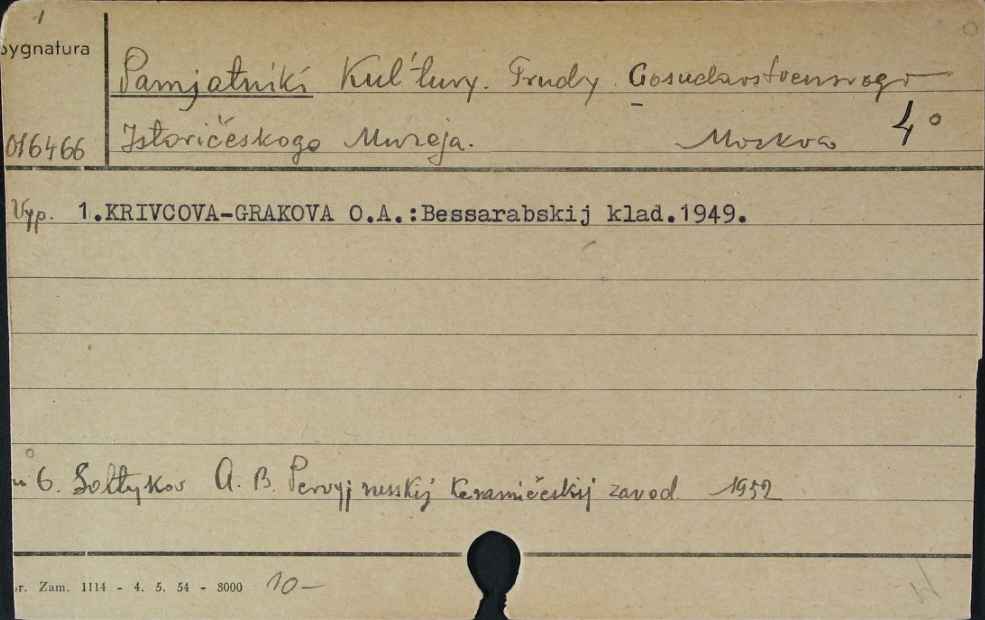 1
Sygnatura
Pamjatniki Kul'tury. Trudy. Gosudarstvennogo
016466
Istoričeskogo Muzeja. Moskva 4°
Vyp. 1.KRIVCOVA-GRAKOVA O.A.:Bessarabskij klad.1949.
6. Soltykov A. B. Pervyj russkij keramičeskij zavod 1952
r. Zam. 1114 - 4. 5. 54 - 3000 10-